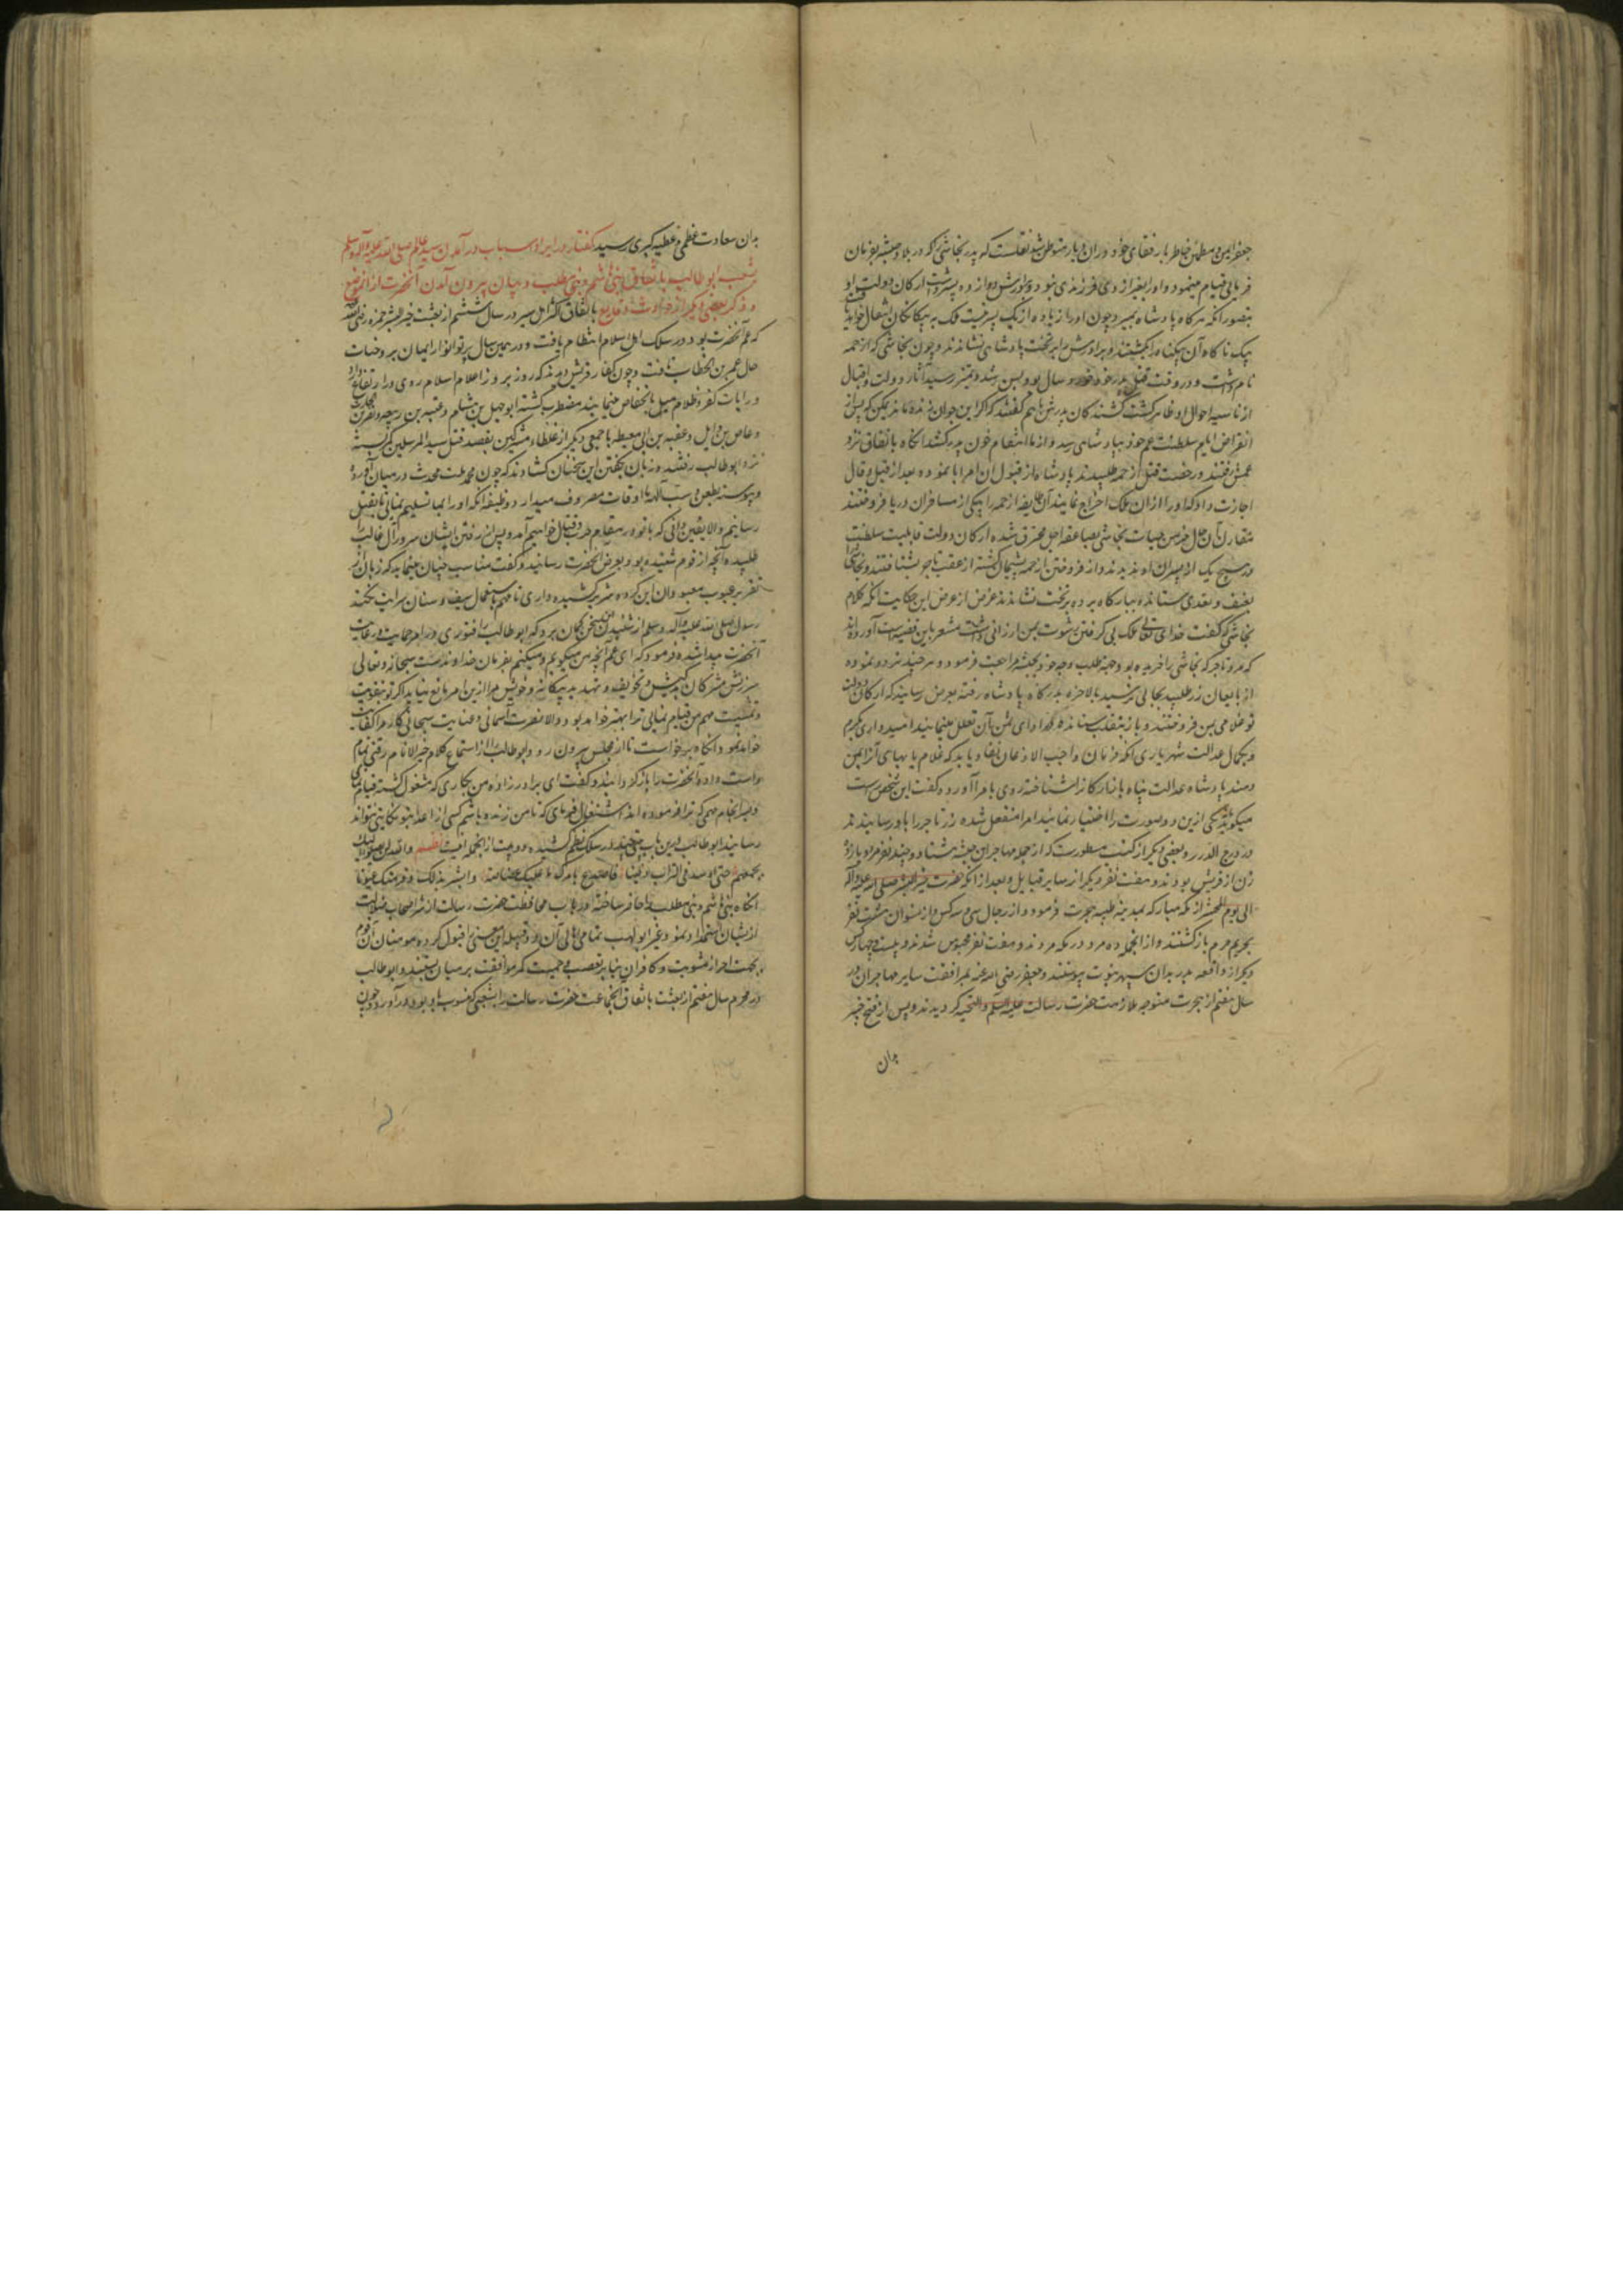 جعفر ایمن و مطمئن خاطر با رفقای خود در ان دیار متوطن شد نقلست که پدر نجاشی که در بلاد حبشه بفرمان
فرمائی قیام مینمود و او را بغیر از وی فرزندی نبود و برادرش دوازده پسر داشت ارکان دولت او
بتصور انکه هرکاه پادشاه بمیرد چون او را زیاده از یک پسر نیست ملک به بیکانکان انتقال خواهد یافت
بیک ناکاه آن بیکناه را بکشتند و برادرش را بر تخت پادشاهی نشاندند و چون نجاشی که ازحمه
نام داشت و در وقت قتل پدر خود خورد سال بود بسن رشد و تمیز رسید آثار دولت و اقبال
از ناصیه احوال او ظاهر کشت کشندکان پدرش باهم کفتند که اکر این جوان زنده ماند یمکن که پس از
انقراض ایام سلطنت عم خود بپادشاهی رسد و از ما انتقام خون پدر کشد انکاه باتفاق نزد
عمش رفتند و رخصت قتل ازحمه طلبیدند پادشاه از قبول ان امر ابا نموده بعد از قیل و قال
اجازت داد که او را از ان ملک اخراج نمایند آن طایفه ازحمه را بیکی از مسافران دریا فروختند
مقارن آن حال خرمن حیات نجاشی بصاعقه اجل محترق شده ارکان دولت قابلیت سلطنت
در هیچ یک از پسران او ندیدند و از فروختن ازحمه پشیمان کشته از عقب تاجر بشتافتند و نجاشی را
بعنف و تعدی ستانده ببارکاه برده بر تخت نشاندند غرض از عرض این حکایت انکه کلام
نجاشی که کفت خدای تعالی ملک بی کرفتن رشوت بمن ارزانی داشت مشعر باین قضیه است آورده‌اند
که مرد تاجر که نجاشی را خریده بود جهة طلب وجه خود بحبشه مراجعت فرمود و هر چند تردد نموده
از بایعان زر طلبید بجائی نرسید بالاخره بدرکاه پادشاه رفته بعرض رسانید که ارکان دولت
تو غلامی بمن فروختند و باز بتغلب ستانده در ادای ثمن آن تعلل مینمایند امیدواری بکرم
و بکمال عدالت شهریاری انکه فرمان واجب الاذعان نفاذ یابد که غلام یا بهای آنرا بمن
دهند پادشاه عدالت پناه بازارکان را شناخته روی بامرا آورد و کفت این شخص راست
میکوید یکی ازین دو صورت را اختیار نمائید امرا منفعل شده زر تاجر را باو رسانیدند
در درج الدرر و بعضی دیکر از کتب مسطورست که از جمله مهاجران حبشه هشتاد و چند نفر مرد و یازده
زن از قریش بودند و هفت نفر دیکر از سایر قبایل و بعد از انکه حضرت خیر البشر صلی الله علیه و آله
الی یوم المحشر از مکه مبارکه بمدینه طیبه هجرت فرمود از رجال سی و سه کس و از نسوان هشت نفر
بحریم حرم بازکشتند و از انجمله ده مرد در مکه مردند و هفت نفر محبوس شدند و بیست و چهار کس
دیکر از واقعه بدر بدان سپهر نبوت پیوستند و جعفر رضی الله عنه بمرافقت سایر مهاجران در
سال هفتم از هجرت متوجه ملازمت حضرت رسالت علیه السلام و التحیه کردیدند و پس از فتح خیبر
بدان
بدان سعادت عظمی و عطیه کبری رسید کفتار در ایراد اسباب در آمدن سید عالم صلی الله علیه و آله و سلم
بشعب ابو طالب باتفاق بنی هاشم و بنی مطلب و بیان بیرون آمدن آنحضرت از ان موضع
و ذکر بعضی دیکر از حوادث و وقایع باتفاق اکثر اهل سیر در سال ششم از بعثت خیر البشر حمزه رضی الله عنه
که عم آنحضرت بود در سلک اهل اسلام انتظام یافت و در همین سال پرتو انوار ایمان بر وجنات
حال عمر بن الخطاب تافت و چون کفار قریش دیدند که روز بروز اعلام اسلام روی در ارتفاع دارد
و رایات کفر و ظلام میل بانخفاض مینمایند مضطرب کشته ابو جهل بن هشام و عتبه بن ربیعه و نضر بن حارث
و عاص بن وایل و عقبه بن ابی معیط با جمعی دیکر از غلظاء مشرکین بقصد قتل سید المرسلین کمر بسته
نزد ابو طالب رفتند و زبان بکفتن این سخنان کشادند که چون محمد ملت محدث در میان آورده
و پیوسته بطعن و سب آلهه ما اوقات مصروف میدارد وظیفه انکه او را بما تسلیم نمائی تا بقتل
رسانیم و الا یقین دانی که با تو در مقام حرب و قتال خواهیم آمد و پس از رفتن ایشان سرور آل غالب را
طلبیده آنچه از قوم شنیده بود بعرض آنحضرت رسانید و کفت مناسب چنان مینماید که زبان از
تقریر عیوب معبودان این کروه شریر کشیده داری تا مهم باستعمال سیف و سنان سرایت نکند
رسول صلی الله علیه و آله و سلم از شنیدن این سخن کمان برد که ابو طالب را فتوری در امر حمایت و رعایت
آنحضرت پیدا شده فرمود که ای عم آنچه من میکویم و میکنم بفرمان خداوندست سبحانه و تعالی
سرزنش مشرکان کج اندیش و تخویف و تهدید بیکانه و خویش مرا ازین امر مانع نیاید اکر تو بتقویت
و تمشیت مهم من قیام نمائی ترا بهتر خواهد بود و الا نصرت آسمانی و عنایت سبحانی کار مرا کفایت
خواهد نمود انکاه برخواست تا از مجلس بیرون رود ابو طالب را از استماع کلام خیر الانام رقتی تمام
دست داده آنحضرت را باز کردانید و کفت ای برادر زاده من بکاری که مشغول کشته قیام نمای
و بسرانجام مهمی که ترا فرموده اند اشتغال فرمای که تا من زنده باشم کسی از اعدا بتو نکایتی نتواند
رسانید ابو طالب درین باب بیتی چند در سلک نظم کشیده دو بیت از انجمله اینست نظم والله لن یصلوا الیک
بجمعهم حتی اوسد فی التراب دفینا فاصدع بامرک ما علیک غضاضة وابشر بذلک وقر منک عیونا
انکاه بنی هاشم و بنی مطلب را حاضر ساخته در باب محافظت حضرت رسالت از شر اصحاب ضلالت
از ایشان استمداد نمود و غیر ابو لهب تمامی اهالی آن دو قبیله این معنی را قبول کرده مومنان آن قوم
بجهت احراز مثوبت و کافران بنابر تعصب و حمیت کمر موافقت بر میان بستند و ابو طالب
در محرم سال هفتم از بعثت باتفاق آنجماعت حضرت رسالت را بشعبی که منسوب باو بود در آورد و چون